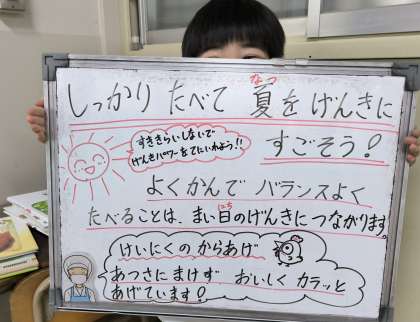 しっかり たべて 夏をげんきに
なつ
すごそう!
すききらいしないで
げんきパワーをてにいれよう!!
よくかんで バランスよく
たべることは、まい日のげんきにつながります。
にち
けいにくのからあげ
あつさにまけず おいしく カラッと
あげています!